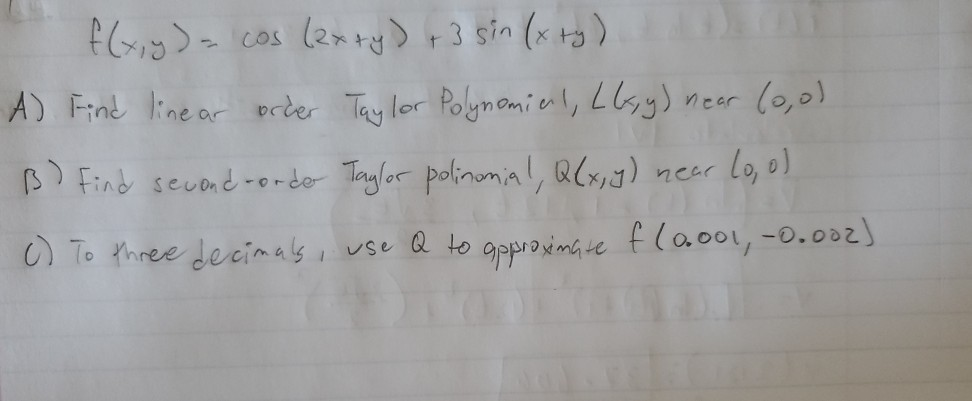 f(x,y) = cos (2x+y) + 3 sin (x+y)
A) Find linear order Taylor Polynomial, L(x,y) near (0,0)
B) Find second-order Taylor polinomial, Q(x,y) near (0,0)
C) To three decimals, use Q to approximate f(0.001, -0.002)